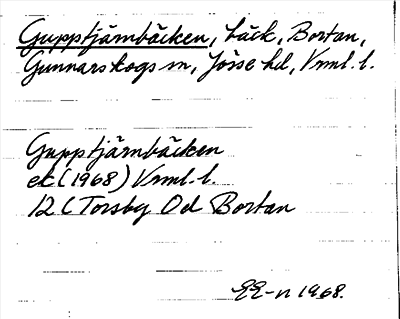 Gupptjärnbäcken, bäck, Bortan,
Gunnarskogs sn, Jösse hd, Vrml. l.
Gupptjärnbäcken
ek (1968) Vrml. l.
12 C Torsby Od Bortan
EE-n 1968.